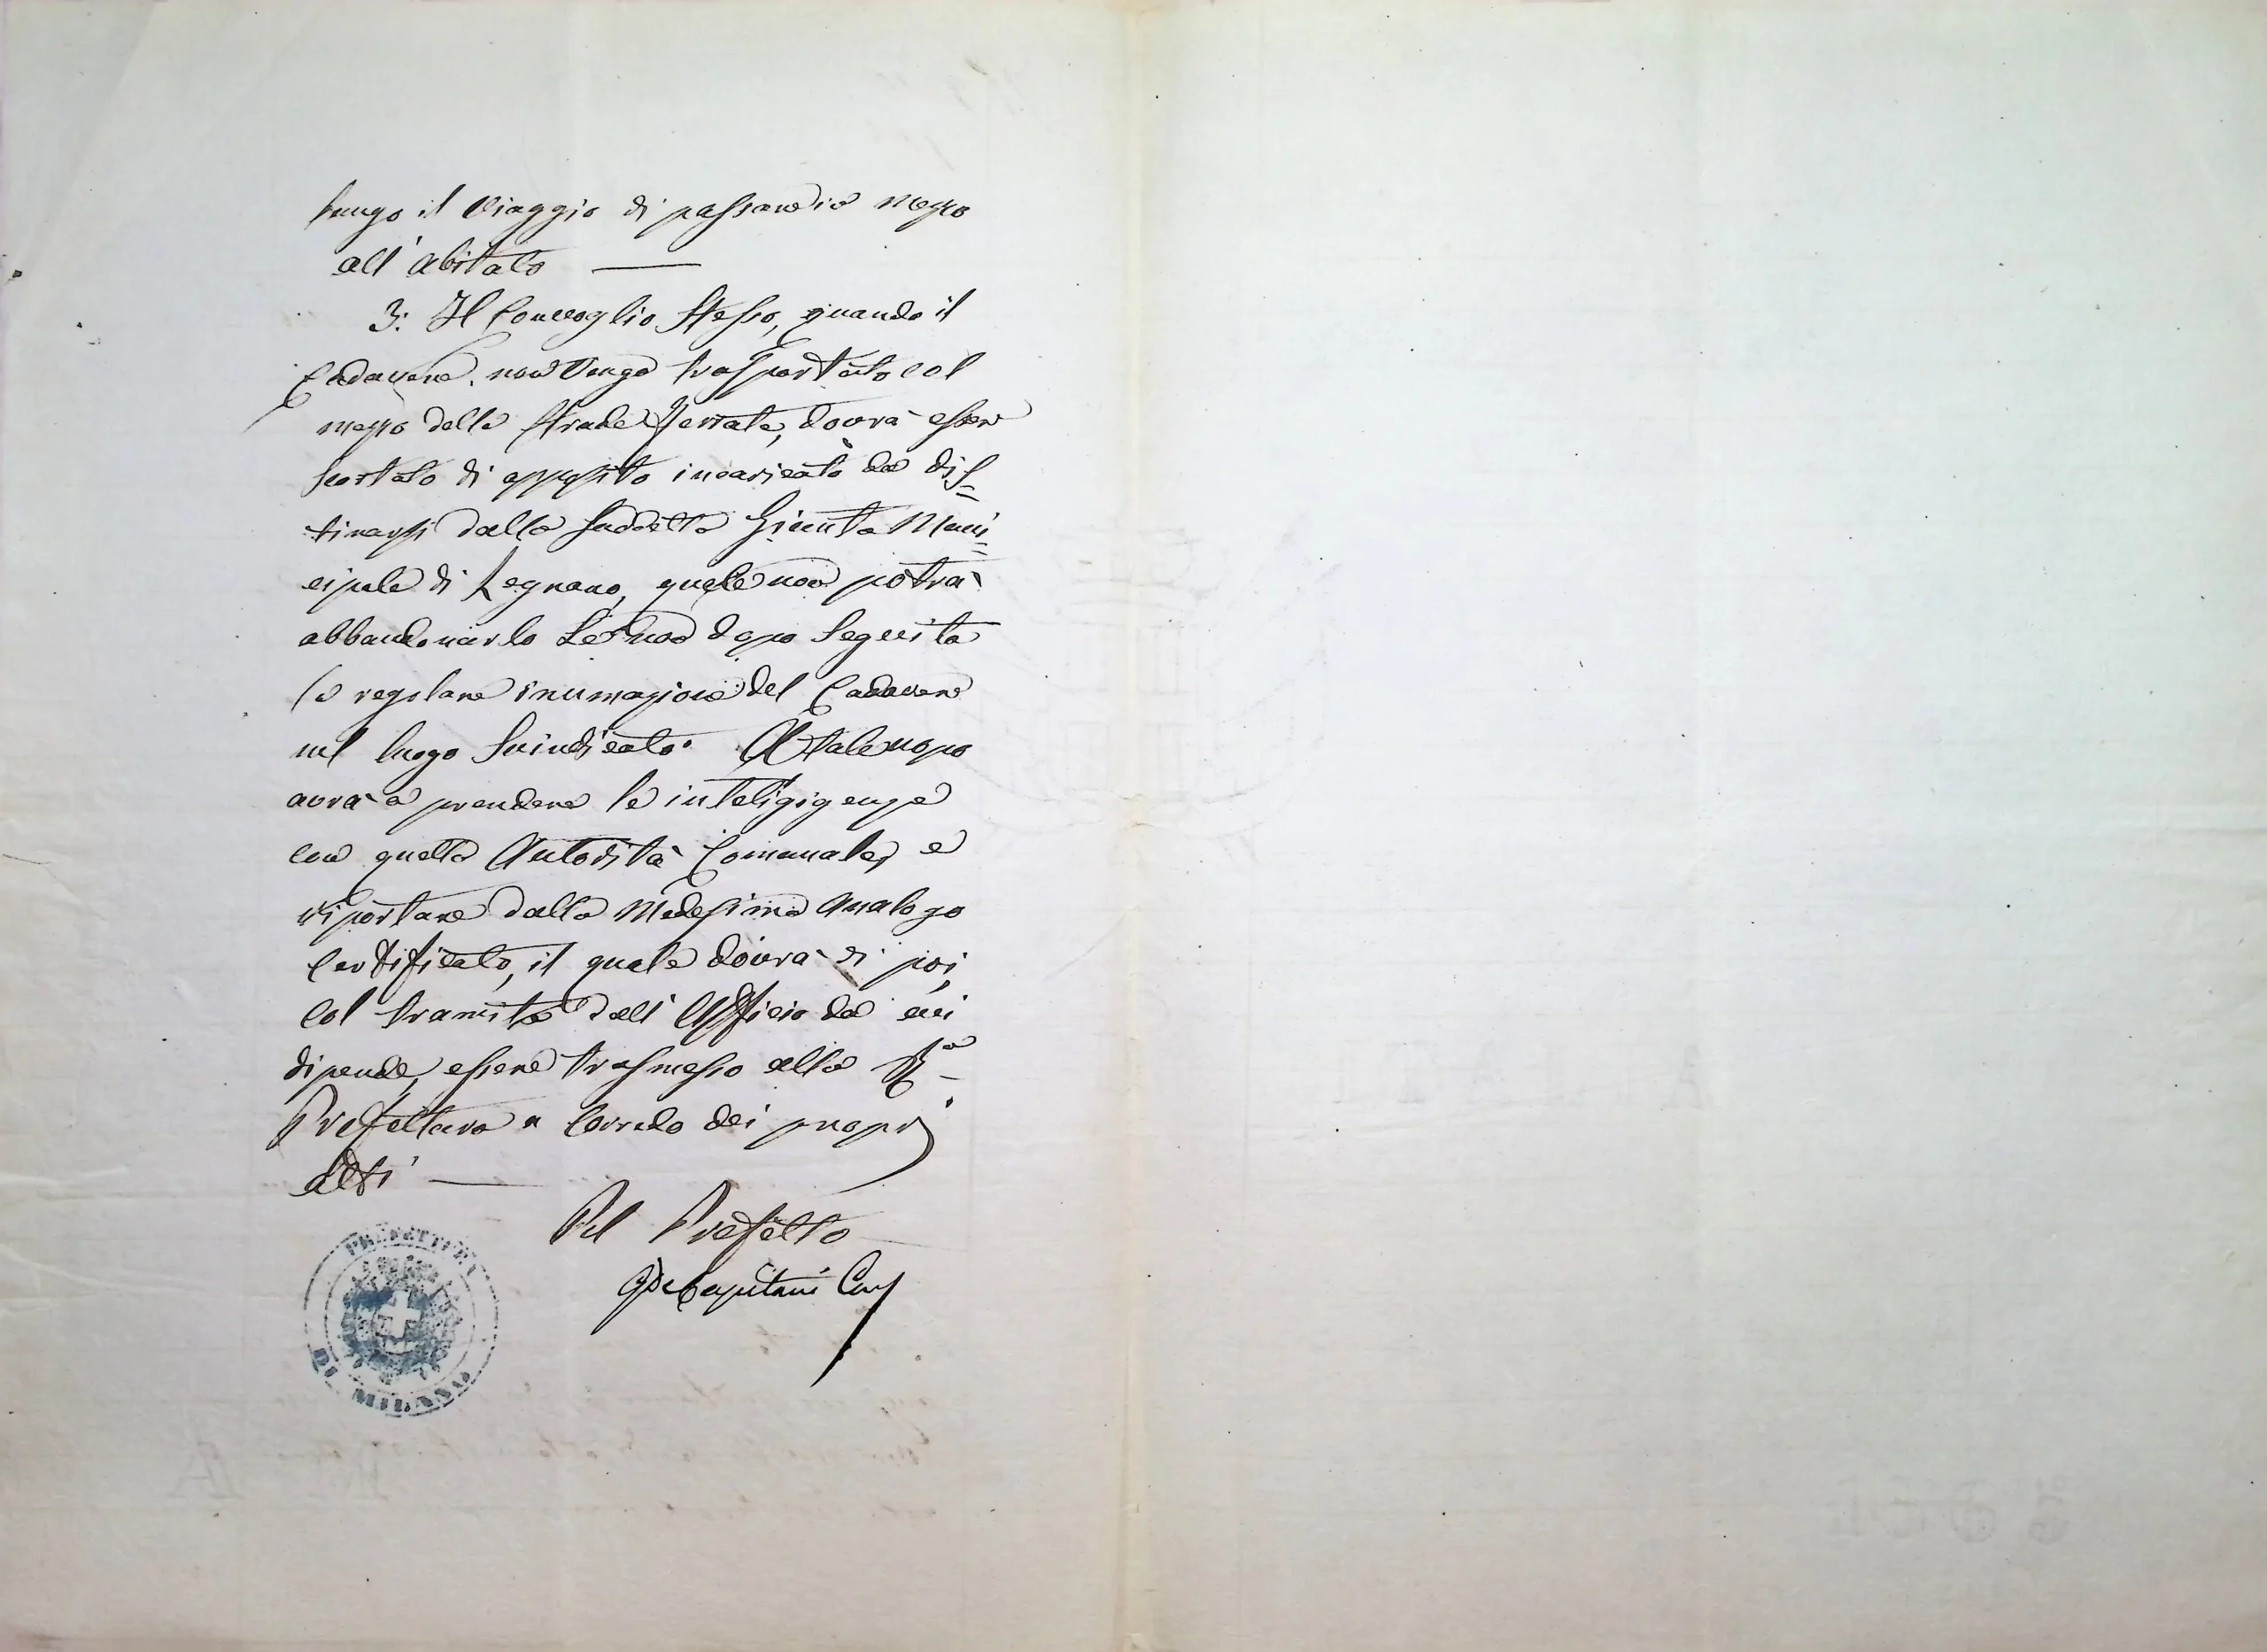 lungo il viaggio di passare in mezzo
all'abitato —
3. Il Convoglio stesso, quando il
Cadavere non venga trasportato col
mezzo delle strade ferrate, dovrà esser
scortato di apposito incaricato da dis=
tinarsi dalla suddetta Giunta Muni=
cipale di Legnano, quale non potrà
abbandonarlo se non dopo seguita
la regolare inumazione del Cadavere
nel luogo suindicato. A tale uopo
avrà a prendere le inteligigenze
con quella Autorità Comunale, e
riportare dalla medesima analogo
Certificato, il quale dovrà di poi,
col tramite dell'Ufficio da cui
dipende, essere trasmesso alla R.a
Prefettura a corredo dei proprj
atti —
Pel Prefetto
De Capitani
PREFETTURA
DI MILANO